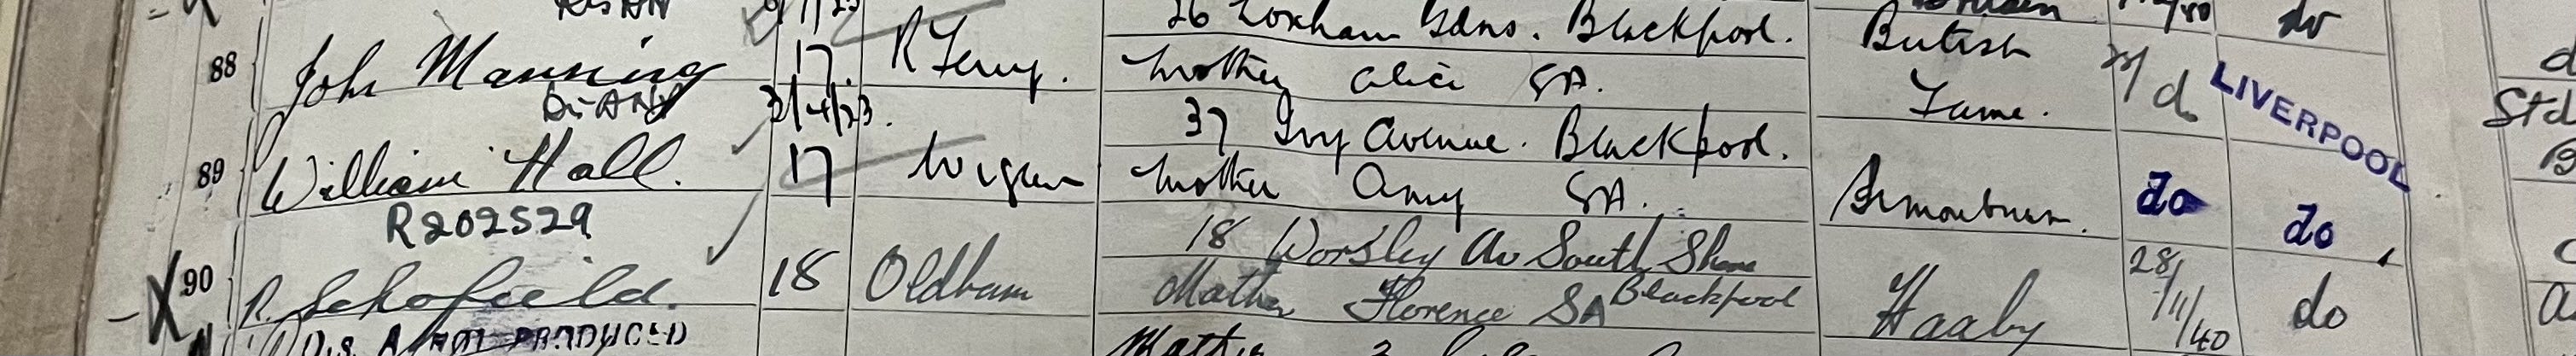 26 Loxham Gdns. Blackpool. do
88 John Manning 17 British
Mother Alice SA. Fame. d LIVERPOOL
Dis A No 3/4/23.
37 Ivy Avenue. Blackpool. Std
89 William Hall. 17 Wigan Mother Amy SA. do do
R202529
18 Worsley Av South Shore
90 R. Schofield. 18 Oldham Mother Florence SA Blackpool Haaby 28/11/40 do
Dis. A NOT PRODUCED
Mother